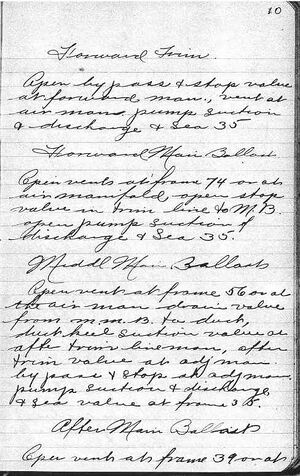 10
Forward Trim.
Open by pass & stop valve
at forward man., vent at
air man. pump suction
& discharge & Sea 35
Forward Main Ballast.
Open vents at frame 74 or at
air manifold, open stop
valve in trim line to M.B.
open pump suction &
discharge & Sea 35.
Middl Main Ballast
Open vent at frame 56 or at
the air man drain valve
from m.m.B. to duct,
duct keel suction valve on
after trim lineman, after
trim valve at adj man
by pass & stop at adj man.
pump suction & discharge
& sea valve at frame 35.
After Main Ballast
Open vent at frame 39 or at